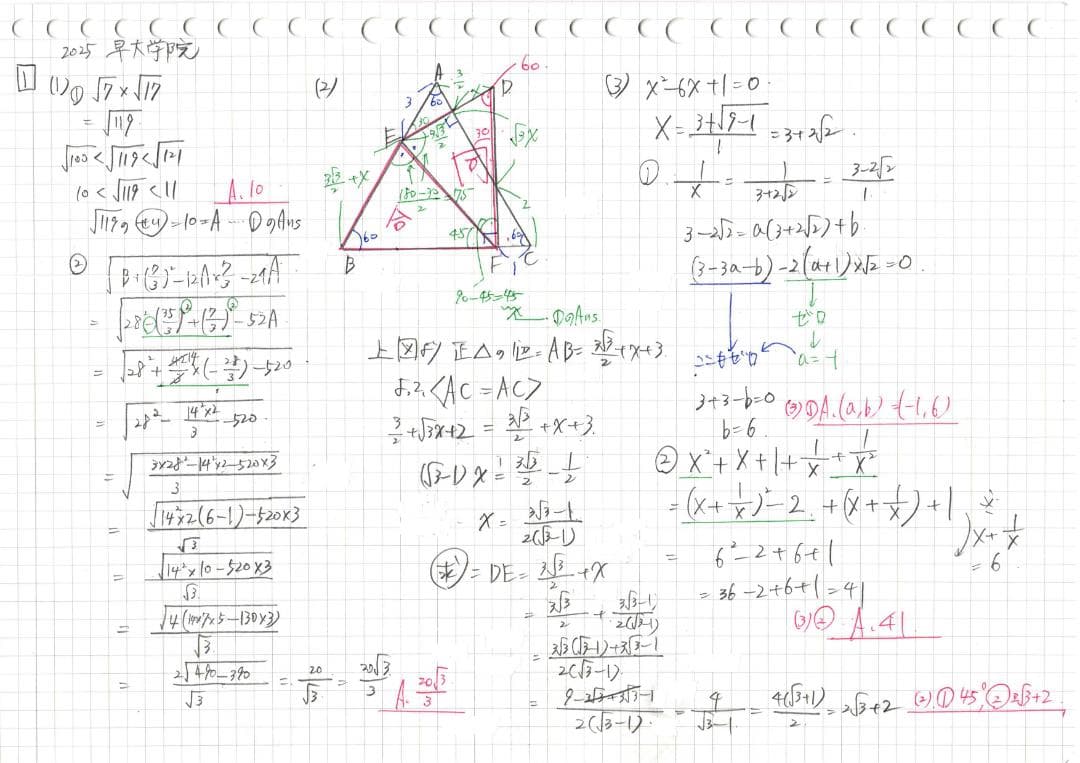 2025 早大学院
1 (1)① √7×√17
= √119
√100<√119<√121
10<√119<11
A. 10
=10=A…①のAns
②
= √28²-14²×2/3-520
= √(3×28²-14²×2-520×3)/3
= √14²×2(6-1)-520×3/√3
= √14²×10-520×3/√3
= 2√490-390/√3 = 20/√3 = 20√3/3
A. 20√3/3
(2)
A
3
3/2
60
60.
D
x
30
30
√3x
E
3√3/2
3√3/2+x
180-30/2=75
合
2
45
60
60
B
F
1
C
90-45=45
x…①のAns.
上図より 正△の1辺=AB=3√3/2+x+3.
よって<AC=AC>
3/2+√3x+2=3√3/2+x+3.
(√3-1)x=3√3/2-1/2
x=3√3-1/2(√3-1)
求=DE=3√3/2+x
=3√3/2+3√3-1/2(√3-1)
=3√3(√3-1)+3√3-1/2(√3-1).
=9-3√3+3√3-1/2(√3-1).=4/√3-1.=4(√3+1)/2=2√3+2
(2).①45°,②2√3+2
(3) x²-6x+1=0.
x=3+√9-1/1=3+2√2.
①. 1/x=1/3+2√2=3-2√2/1.
3-2√2=a(3+2√2)+b.
(3-3a-b)-2(a+1)×√2=0.
ゼロ
ここもゼロ
a=-1
3+3-b=0
b=6.
(3)①A.(a,b)=(-1,6)
② x²+x+1+1/x+1/x²
=(x+1/x)²-2+(x+1/x)+1
x+1/x
=6
= 6²-2+6+1
=36-2+6+1=41
(3)② A.41.